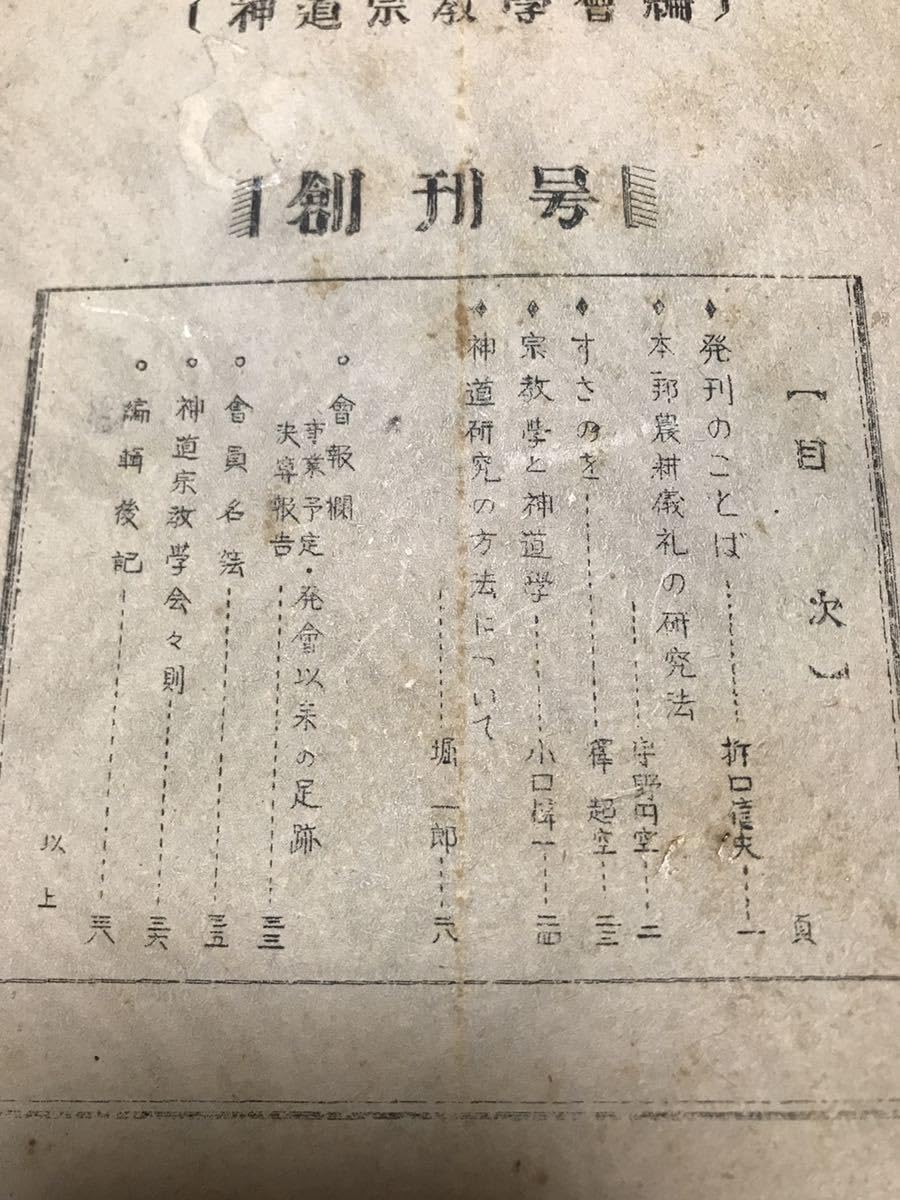 (神道宗教學會編)
創刊号
【目次】
頁
発刊のことば 折口信夫 一
本邦農耕儀礼の研究法
宇野円空 二
すさのを 釋 超空 二三
宗教學と神道學 小口偉一 二四
神道研究の方法について
堀 一郎 二八
會報欄
事業予定・発會以来の足跡
決算報告 三三
會員名簿 三五
神道宗教學会々則 三六
編輯後記 三八
以上